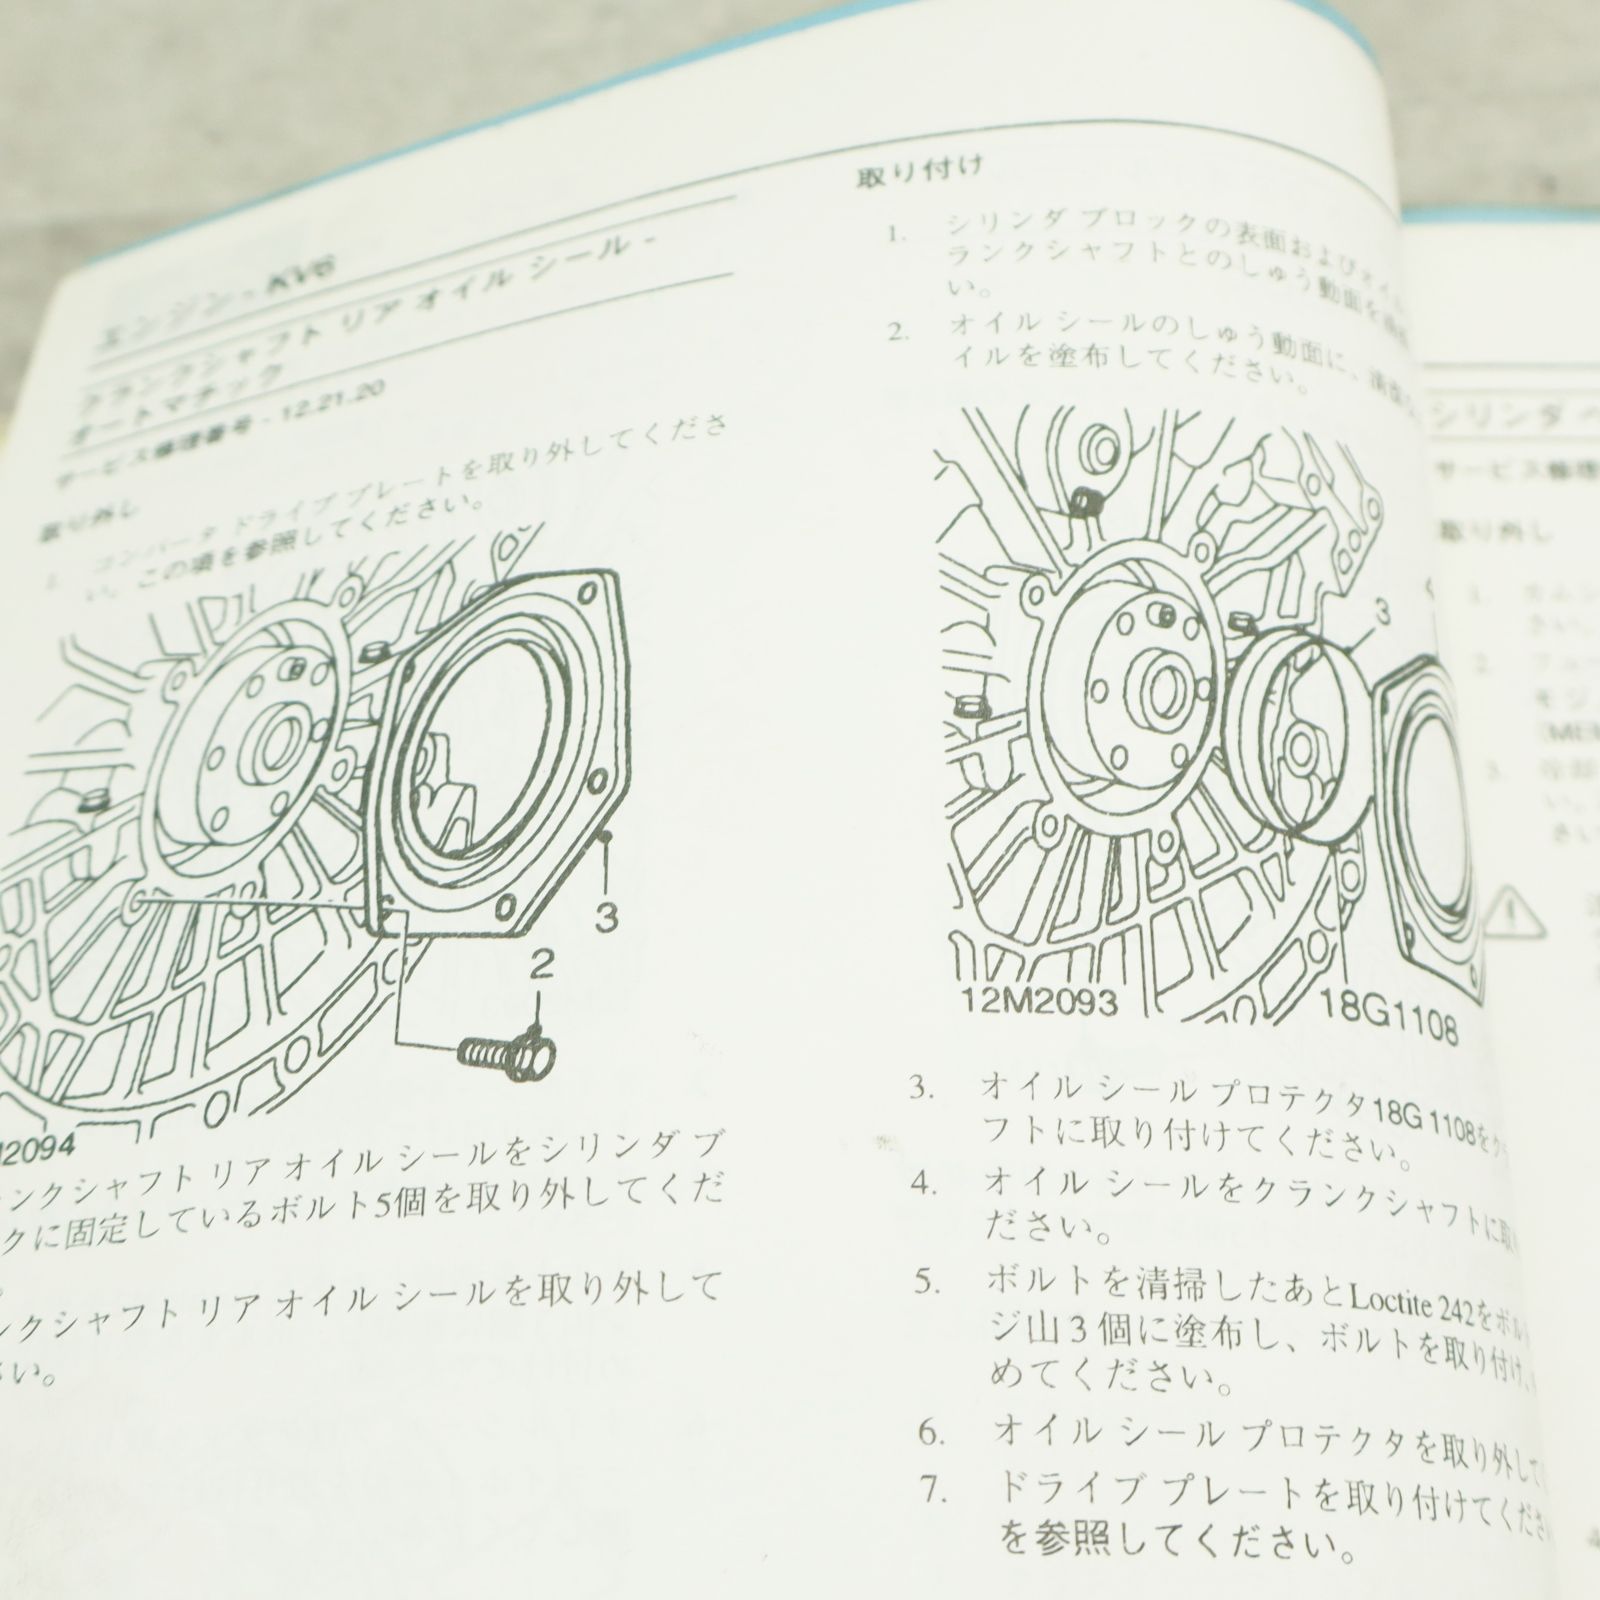 エンジン - KV6
クランクシャフト リア オイル シール -
オートマチック
サービス修理番号 - 12.21.20
取り外し
1. コンバータ ドライブ プレートを取り外してくださ
い。この項を参照してください。
3
2
2094
ンクシャフト リア オイル シールをシリンダ ブ
クに固定しているボルト5個を取り外してくだ
クシャフト リア オイル シールを取り外して
い。
取り付け
1. シリンダ ブロックの表面およびオイル
ランクシャフトとのしゅう動面を
い。
2. オイル シールのしゅう動面に、
イルを塗布してください。
3
12M2093
18G1108
3. オイル シール プロテクタ18G 1108を
フトに取り付けてください。
4. オイル シールをクランクシャフトに取
ださい。
5. ボルトを清掃したあとLoctite 242をボル
ジ山3個に塗布し、ボルトを取り付け、
めてください。
6. オイル シール プロテクタを取り外して
7. ドライブ プレートを取り付けてくださ
を参照してください。
シリンダ
サービス修理
取り外し
1.
さい。
2. フュー
モジ
3.